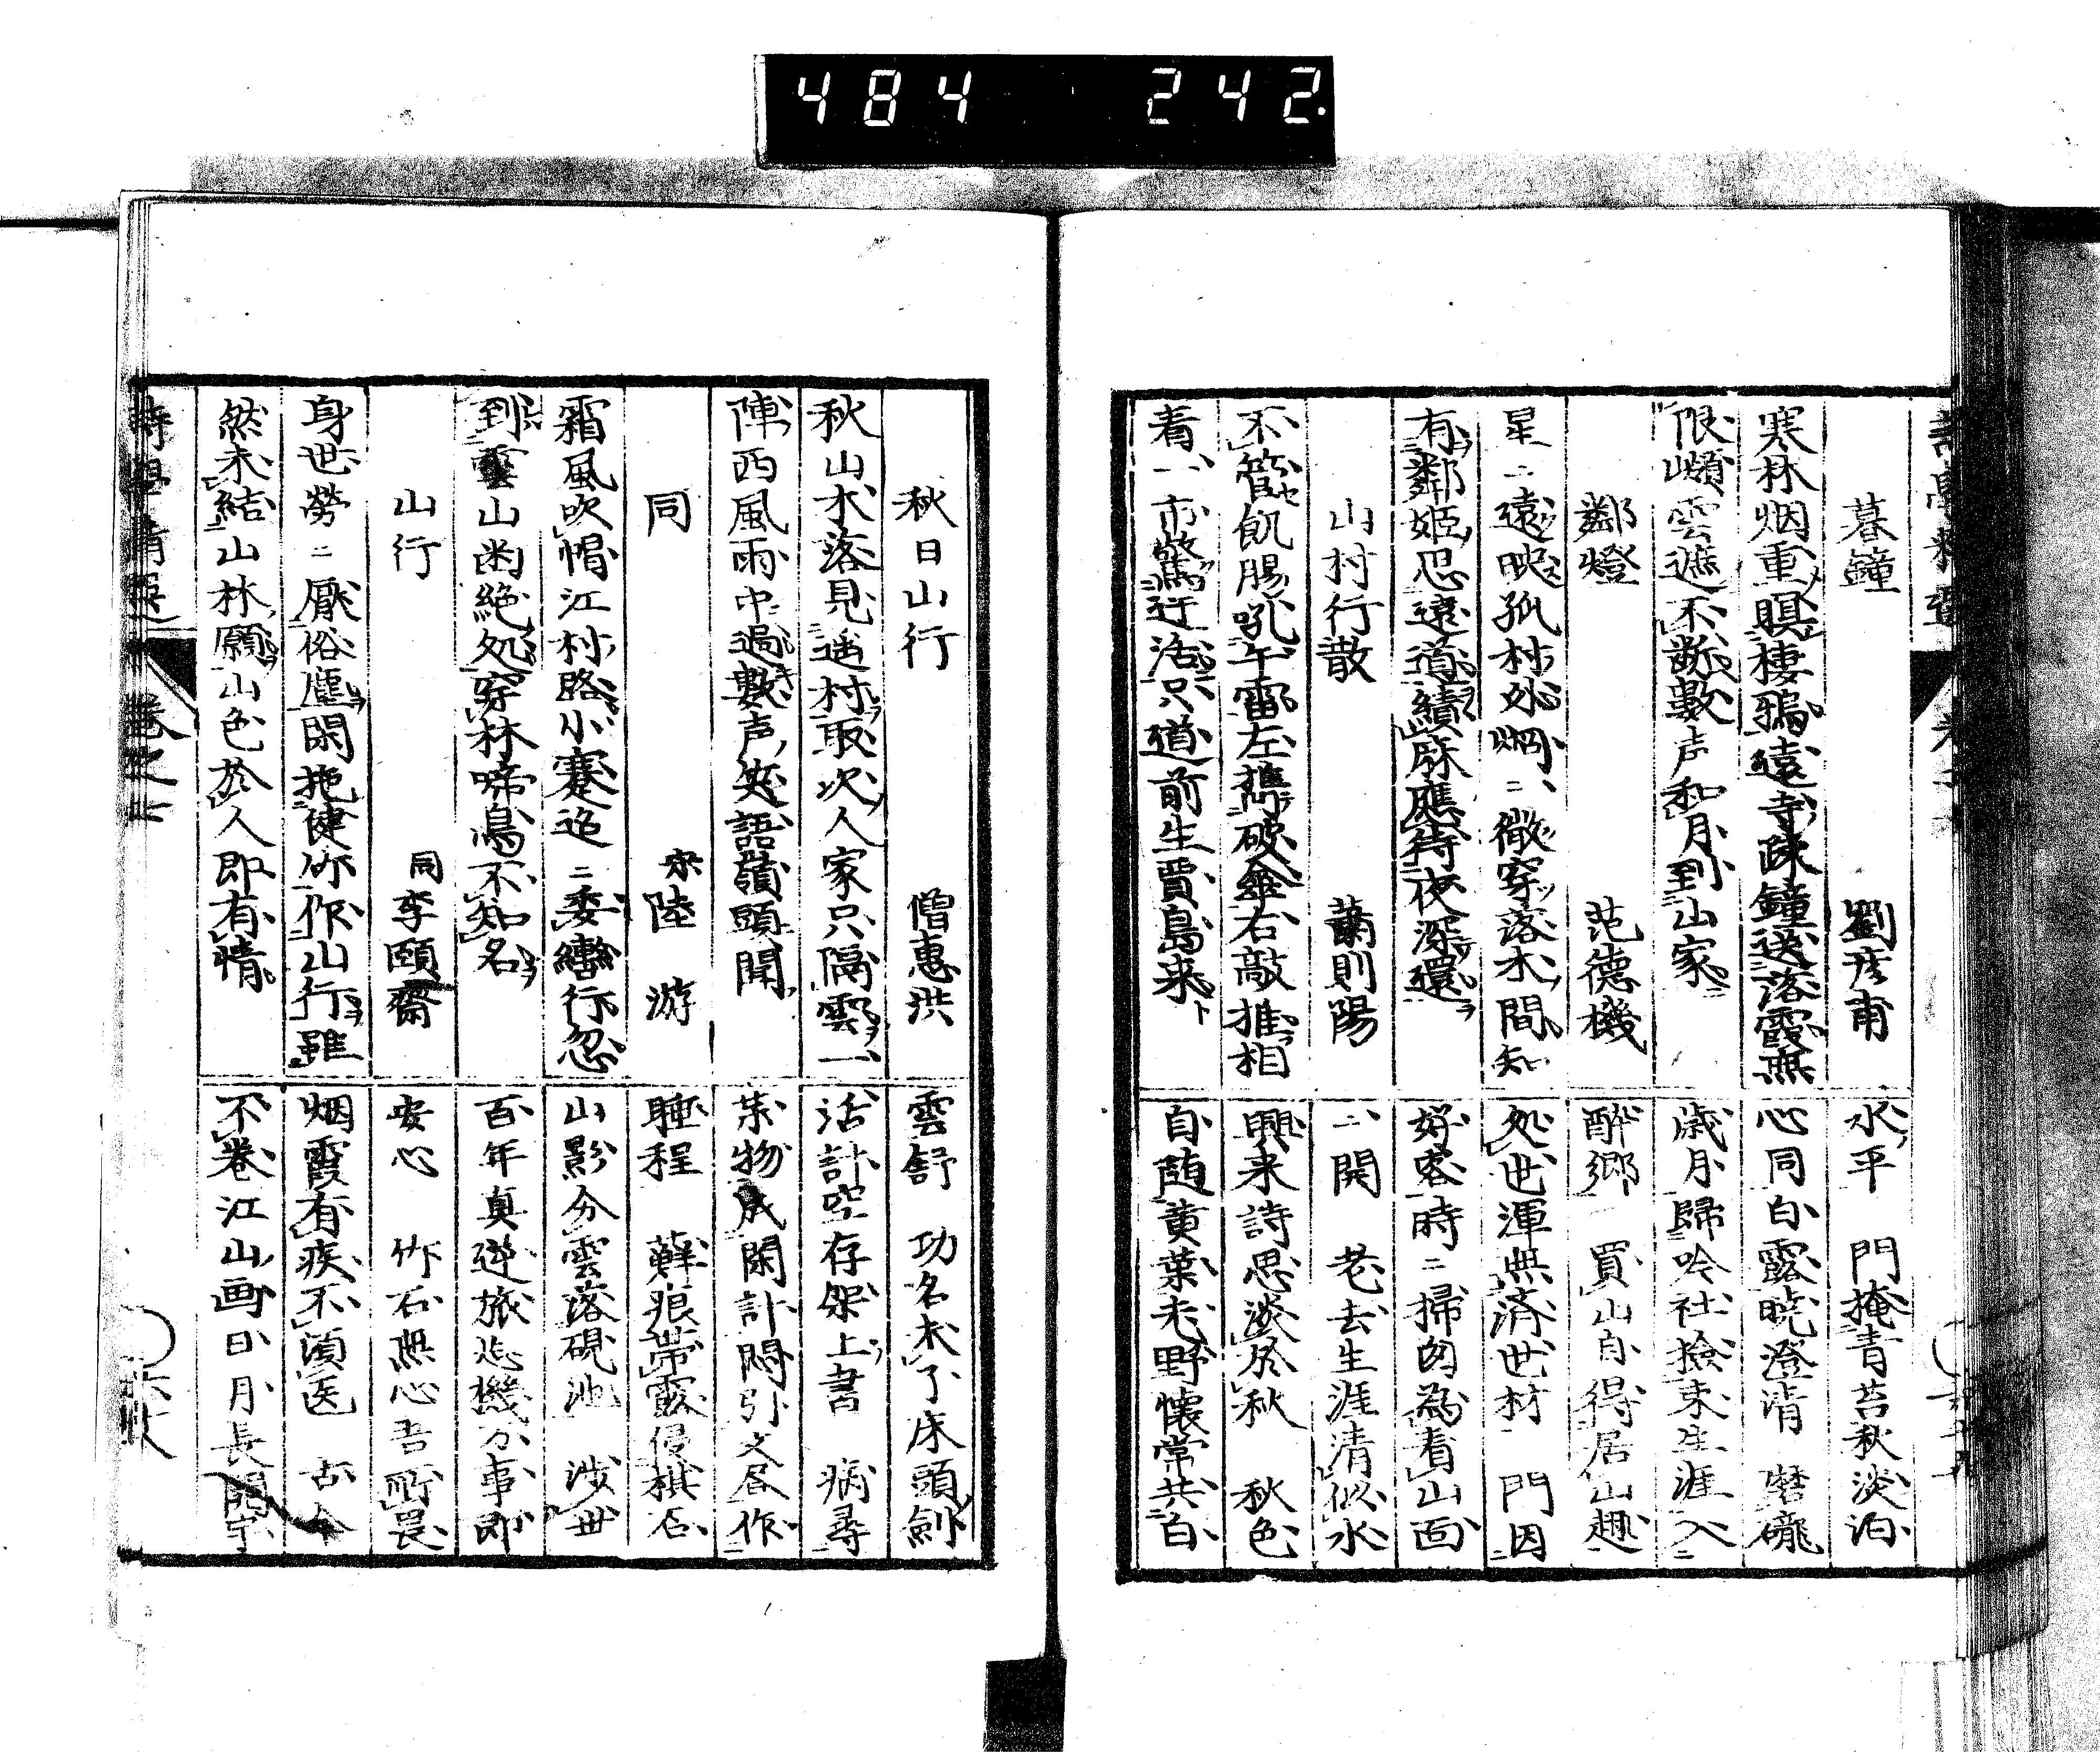 484 242
暮鐘 劉彦甫
寒林烟重瞑棲鴉遠寺疎鐘送落霞無
限嶺雲遮不断數声和月到山家
鄰燈 范德機
星二遠映孤村外炯二微穿落木間知
有鄰姬忍遠道績麻應待夜深還
山村行散 蕭則陽
不管飢腸吼午雷左携破傘右敲推相
看一市驚迂活只道前生賈島来
水平 門掩青苔秋淡泊
心同白露暁澄清 磨礲
歳月歸吟社撿束生涯入
醉郷 買山自得居山趣
処世渾無済世材 門因
好客時二掃的為看山面
二開 老去生涯清似水
興来詩思淡於秋 秋色
自随黄葉老野懐常共白
秋日山行 僧惠洪
秋山木落見遥村取次人家只隔雲一
陣西風雨中過數声笑語嶺頭聞
同 宋陸 游
霜風吹帽江村路小蹇迢二委轡行忽
到雲山断絶処穿林啼鳥不知名
山行 同李頤齋
身世勞二厭俗塵閑拖健竹作山行雖
然未結山林願山色於人即有情
雲舒 功名未了床頭劍
活計空存架上書 病尋
薬物成閑計悶引文君作
睡程 蘚痕帯露侵棋石
山影分雲落硯池 渉世
百年真逆旅忘機万事即
安心 竹石無心吾所畏
烟霞有疾不須医 古今
不巻江山画日月長
巻之七